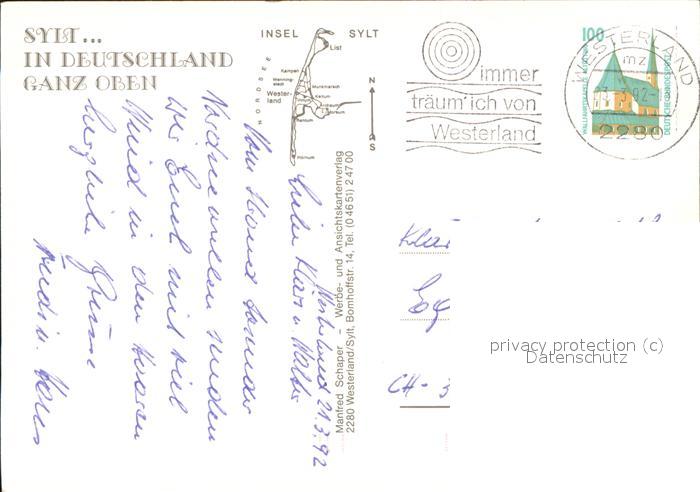 SYLT...
IN DEUTSCHLAND
GANZ OBEN
INSEL SYLT
NORDSEE
List
Kampen
Wenning-
stedt
Munkmarsch
Wester-
land
Keitum
Tinnum
Archsum
Morsum
Rantum
Hörnum
N
S
immer
träum' ich von
Westerland
100
WESTERLAND
mz
2280
DEUTSCHE BUNDESPOST
Manfred Schaper – Werbe- und Ansichtskartenverlag
2280 Westerland/Sylt, Bomhoffstr. 14, Tel. (0 46 51) 2 47 00
Westerland 21.3.92
Liebe Klara u. Walter
Vom Strand
senden
wir Euch mit viel
Wind in den Haaren
herzliche Grüsse
CH-3
privacy protection (c)
Datenschutz